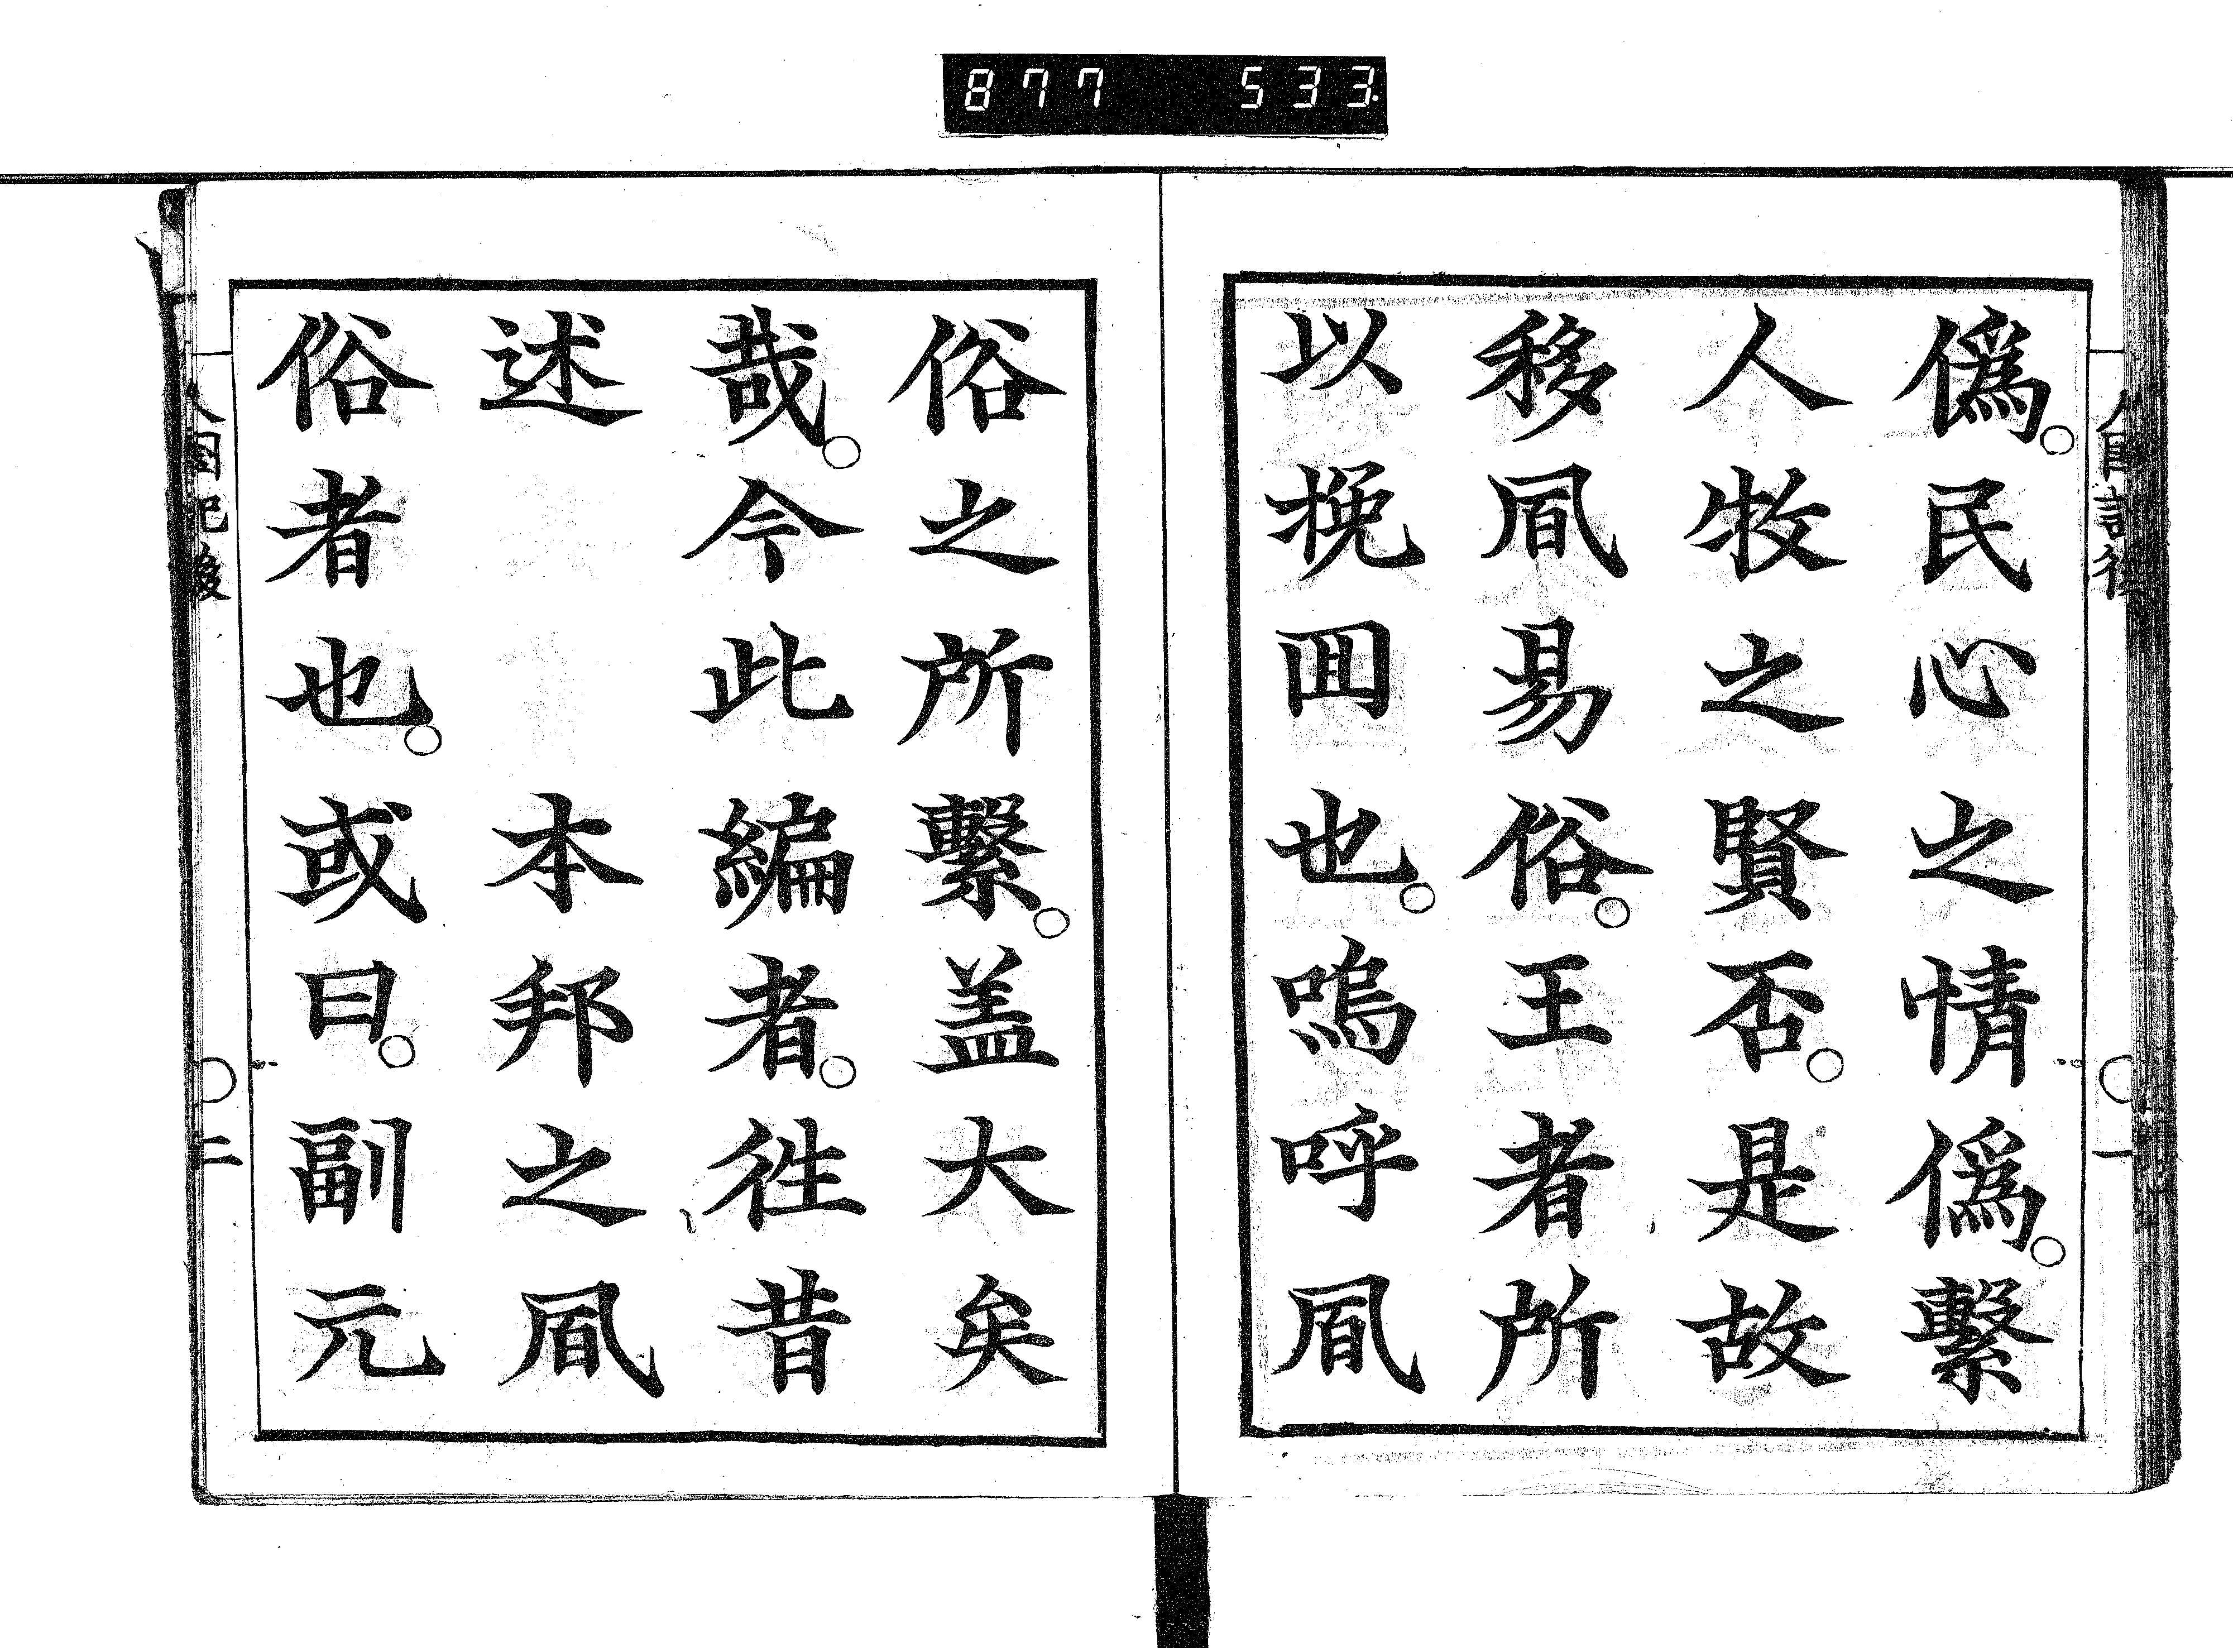 877 533
僞。民心之情僞。繫
人牧之賢否。是故
移凬易俗。王者所
以挽囬也。嗚呼凬
俗之所繫。盖大矣
哉。今此編者。徃昔
述本邦之凬
俗者也。或曰。副元
人國記後
一
二